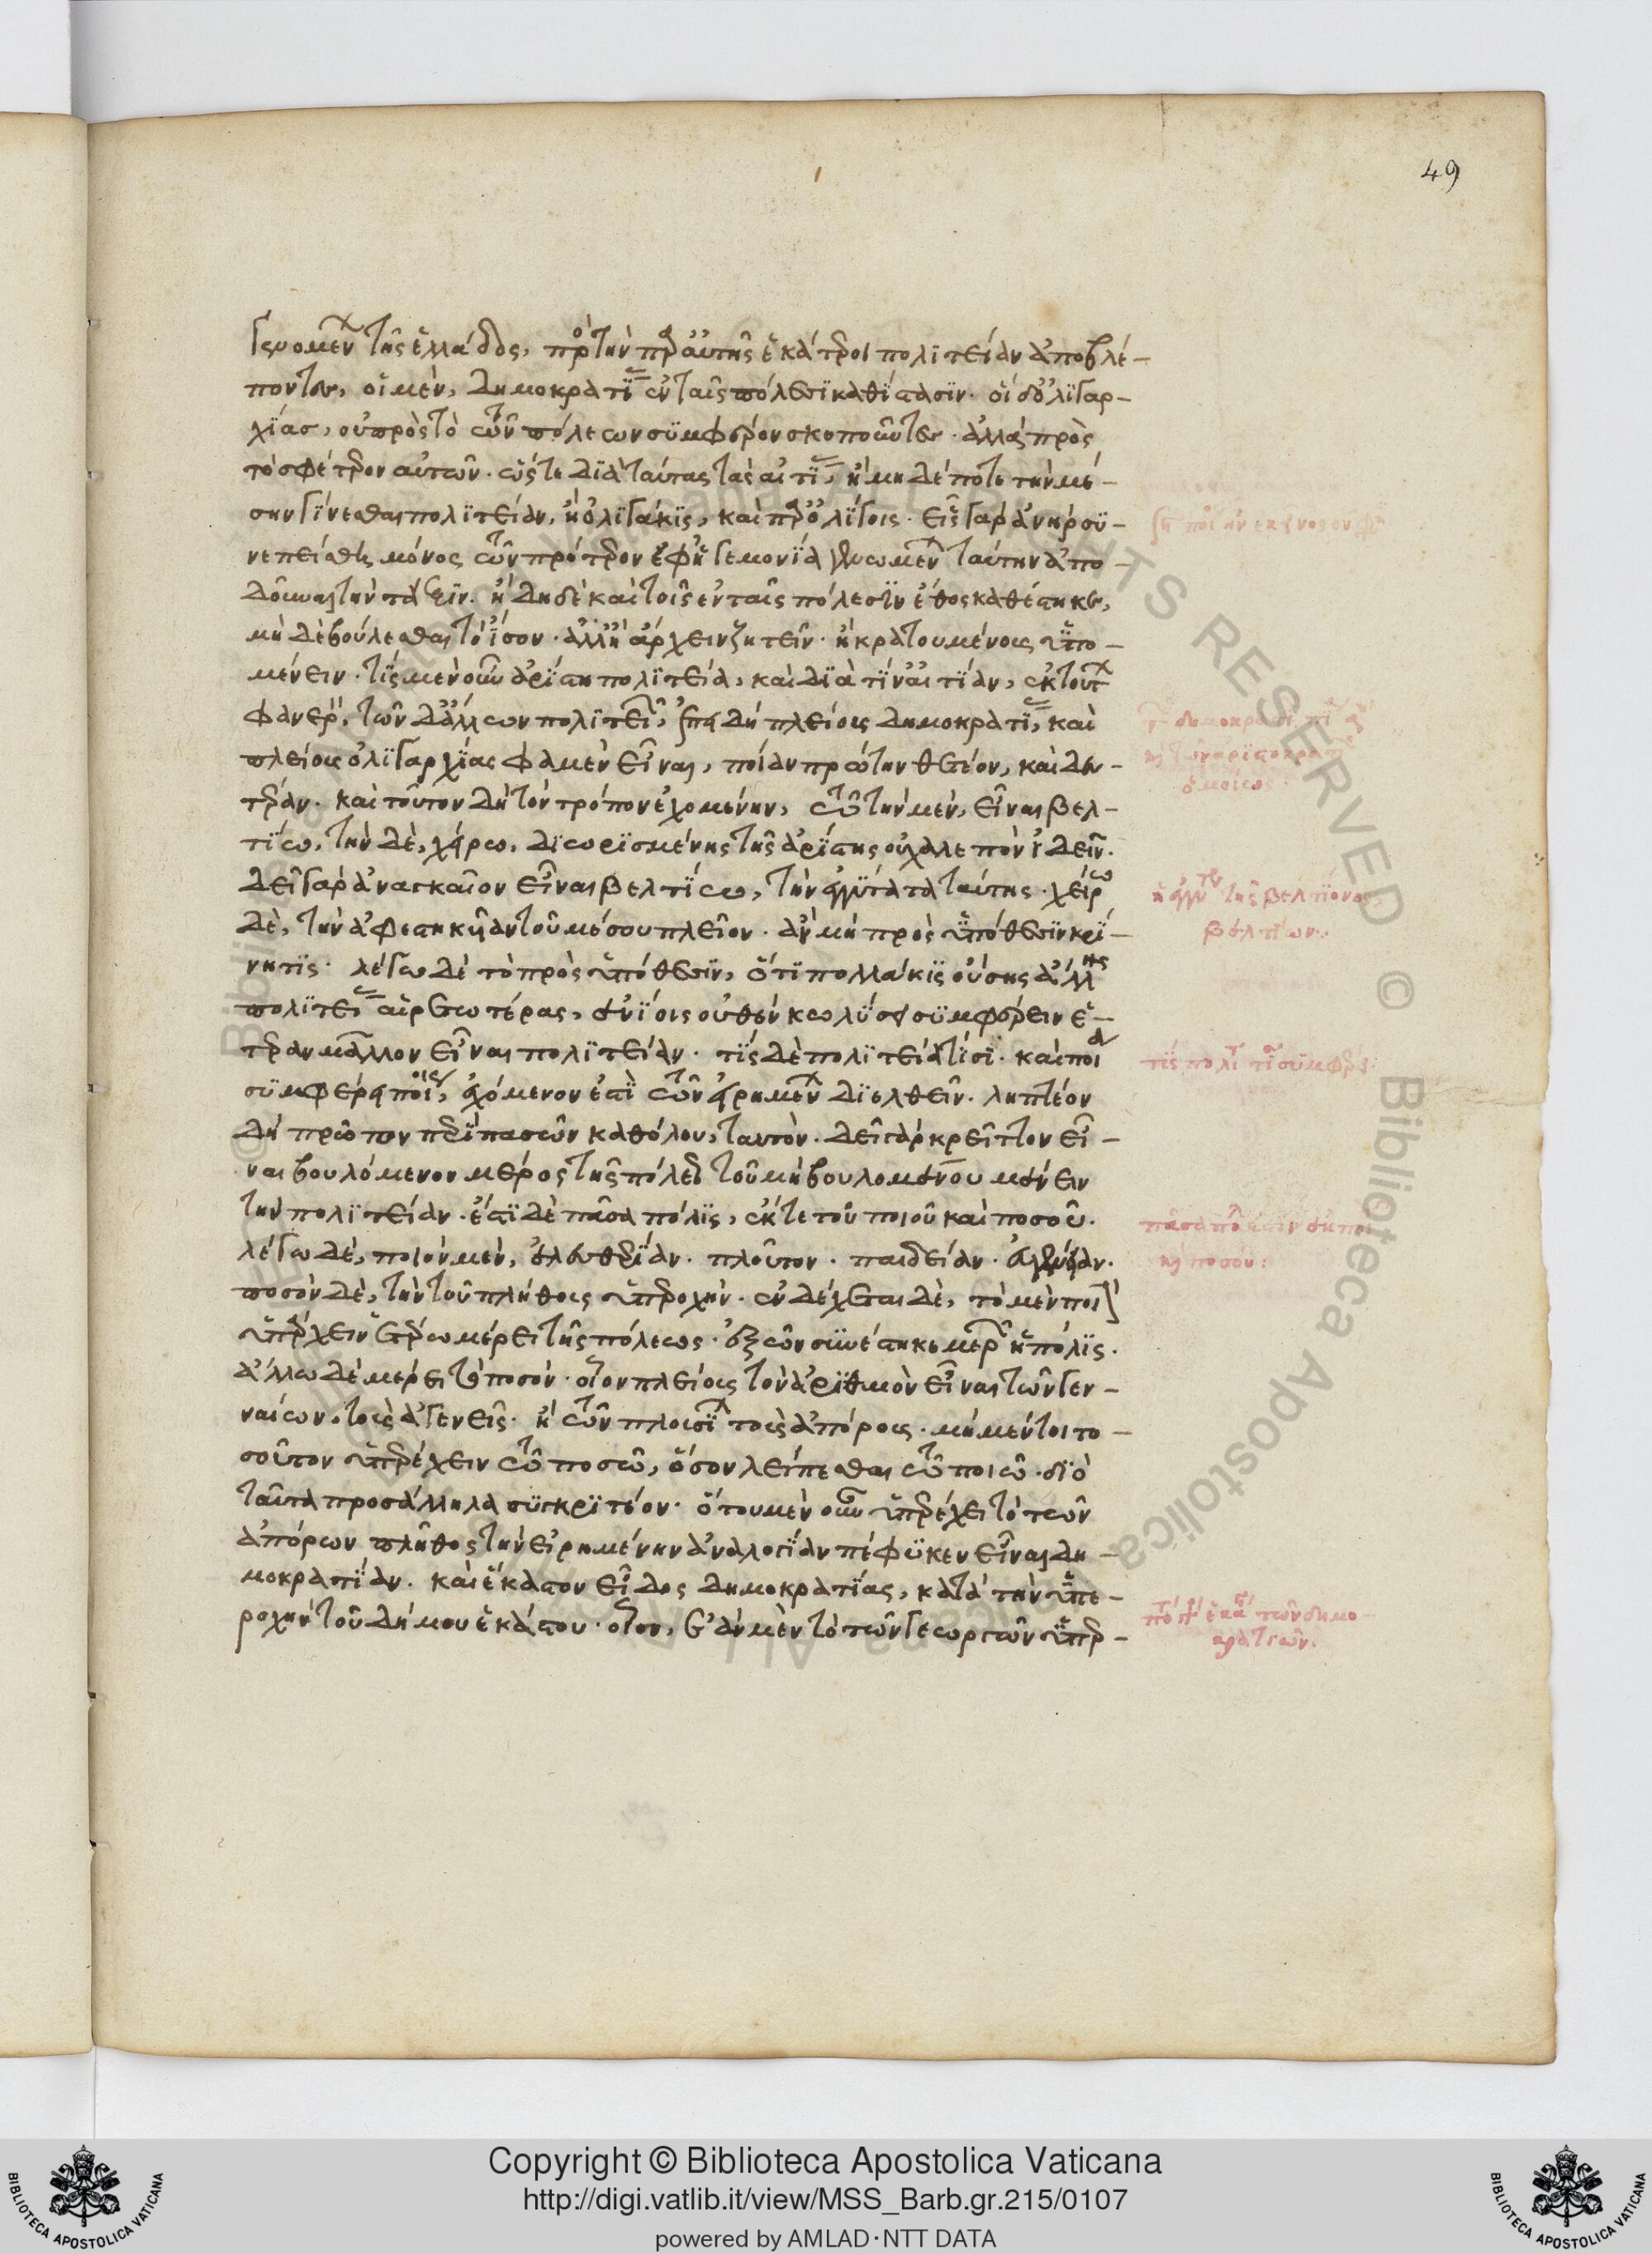 49
γενομένων τῆς ἑλλάδος, πρὸς τὴν παρ' αὑτῆς ἑκάτεροι πολιτείαν ἀποβλέ-
ποντες, οἱ μὲν, δημοκρατίας ἐν ταῖς πόλεσι καθίστασιν. οἱ δ' ὀλιγαρ-
χίας, οὐ πρὸς τὸ τῶν πόλεων συμφέρον σκοποῦντες. ἀλλὰ πρὸς
τὸ σφέτερον αὐτῶν. ὥστε διὰ ταύτας τὰς αἰτίας, ἢ μηδέποτε τὴν μέ-
σην γίνεσθαι πολιτείαν, ἢ ὀλιγάκις, καὶ παρ' ὀλίγοις. εἷς γὰρ ἀνὴρ συ-
νεπείσθη μόνος τῶν πρότερον ἐφ' ἡγεμονία γενομένων ταύτην ἀπο-
δοῦναι τὴν τάξιν. ἤδη δὲ καὶ τοῖς ἐν ταῖς πόλεσιν ἔθος καθέστηκεν,
μὴ δὲ βούλεσθαι τὸ ἴσον. ἀλλ' ἢ ἄρχειν ζητεῖν. ἢ κρατουμένους ὑπο-
μένειν. τίς μὲν οὖν ἀρίστη πολιτεία, καὶ διὰ τίν' αἰτίαν, ἐκ τούτων
φανερόν, τῶν δ' ἄλλων πολιτειῶν, ἐπειδὴ πλείους δημοκρατίας, καὶ
πλείους ὀλιγαρχίας φαμὲν εἶναι, ποίαν πρώτην θετέον, καὶ δευ-
τέραν. καὶ τοῦτον δὴ τὸν τρόπον ἐχομένην, τῷ τὴν μὲν, εἶναι βελ-
τίω, τὴν δὲ, χείρω, διωρισμένης τῆς ἀρίστης οὐ χαλεπὸν ἰδεῖν.
δεῖ γὰρ ἀναγκαῖον εἶναι βελτίω, τὴν ἐγγύτατα ταύτης. χείρω
δὲ, τὴν ἀφεστηκυῖαν τοῦ μέσου πλεῖον. ἂν μὴ πρὸς ὑπόθεσιν κρί-
νη τις. λέγω δὲ τὸ πρὸς ὑπόθεσιν, ὅτι πολλάκις οὔσης ἄλλης
πολιτείας αἱρετωτέρας, ἐνίοις οὐθὲν κωλύσει συμφέρειν ἑ-
τέραν μᾶλλον εἶναι πολιτείαν. τίς δὲ πολιτεία τίσι. καὶ ποία
συμφέρει ποίοις, ἐχόμενον ἐστὶ τῶν εἰρημένων διελθεῖν. ληπτέον
δὴ πρῶτον περὶ πασῶν καθόλου, ταυτόν. δεῖ γὰρ κρεῖττον εἶ-
ναι βουλόμενον μέρος τῆς πόλεως τοῦ μὴ βουλομένου μένειν
τὴν πολιτείαν. ἔστι δὲ πᾶσα πόλις, ἔκ τε τοῦ ποιοῦ καὶ ποσοῦ.
λέγω δὲ, ποιὸν μὲν, ἐλευθερίαν. πλοῦτον. παιδείαν. εὐγένειαν.
ποσὸν δὲ, τὴν τοῦ πλήθους ὑπεροχήν. ἐνδέχεται δὲ, τὸ μὲν ποιὸν
ὑπάρχειν ἑτέρω μέρει τῆς πόλεως. ἐξ ὧν συνέστηκε μερῶν ἡ πόλις.
ἄλλω δὲ μέρει τὸ ποσόν. οἷον πλείους τὸν ἀριθμὸν εἶναι τῶν γεν-
ναίων, τοὺς ἀγενεῖς. ἢ τῶν πλουσίων τοὺς ἀπόρους. μὴ μέντοι το-
σοῦτον ὑπερέχειν τῷ ποσῷ, ὅσον λείπεσθαι τῷ ποιῷ. διὸ
ταῦτα πρὸς ἄλληλα συγκριτέον. ὅπου μὲν οὖν ὑπερέχει τὸ τῶν
ἀπόρων πλῆθος τὴν εἰρημένην ἀναλογίαν πέφυκεν εἶναι δη-
μοκρατίαν. καὶ ἕκαστον εἶδος δημοκρατίας, κατὰ τὴν ὑπε-
ροχὴν τοῦ δήμου ἑκάστου. οἷον, ἐὰν μὲν τὸ τῶν γεωργῶν ὑπερ-
τῆς βελτίονος,
βελτίων.
τίς πολιτεία τίσι συμφέρει.
πᾶσα πόλις ἐστὶν ἐκ ποιοῦ
καὶ ποσοῦ:
τῶν δημο-
κρατιῶν.
Copyright © Biblioteca Apostolica Vaticana
http://digi.vatlib.it/view/MSS_Barb.gr.215/0107
powered by AMLAD·NTT DATA
BIBLIOTECA APOSTOLICA VATICANA
BIBLIOTECA APOSTOLICA VATICANA